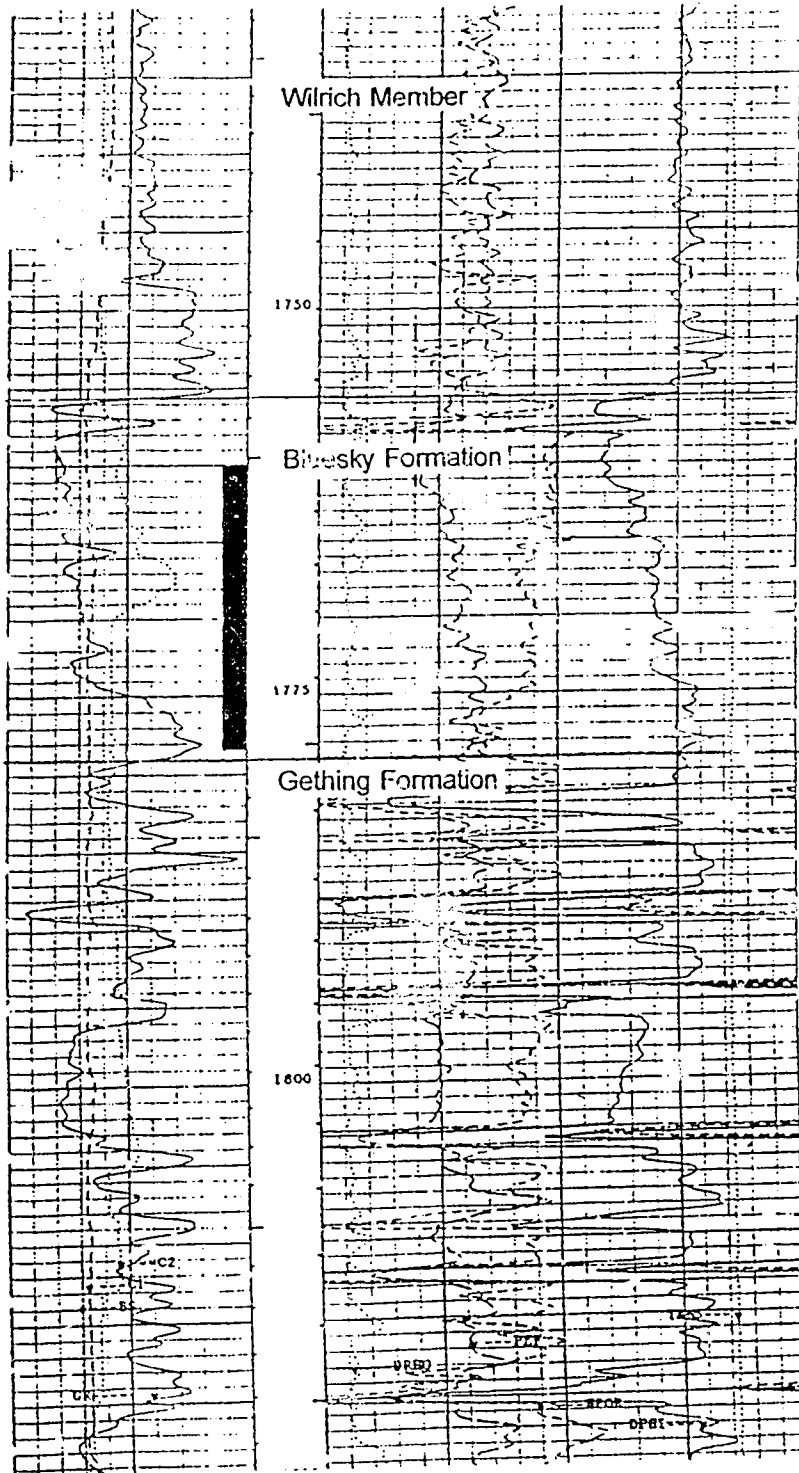 Wilrich Member
1750
Bluesky Formation
1775
Gething Formation
1800
C2
C1
BS
PEF
GR
NPOR
DPHI